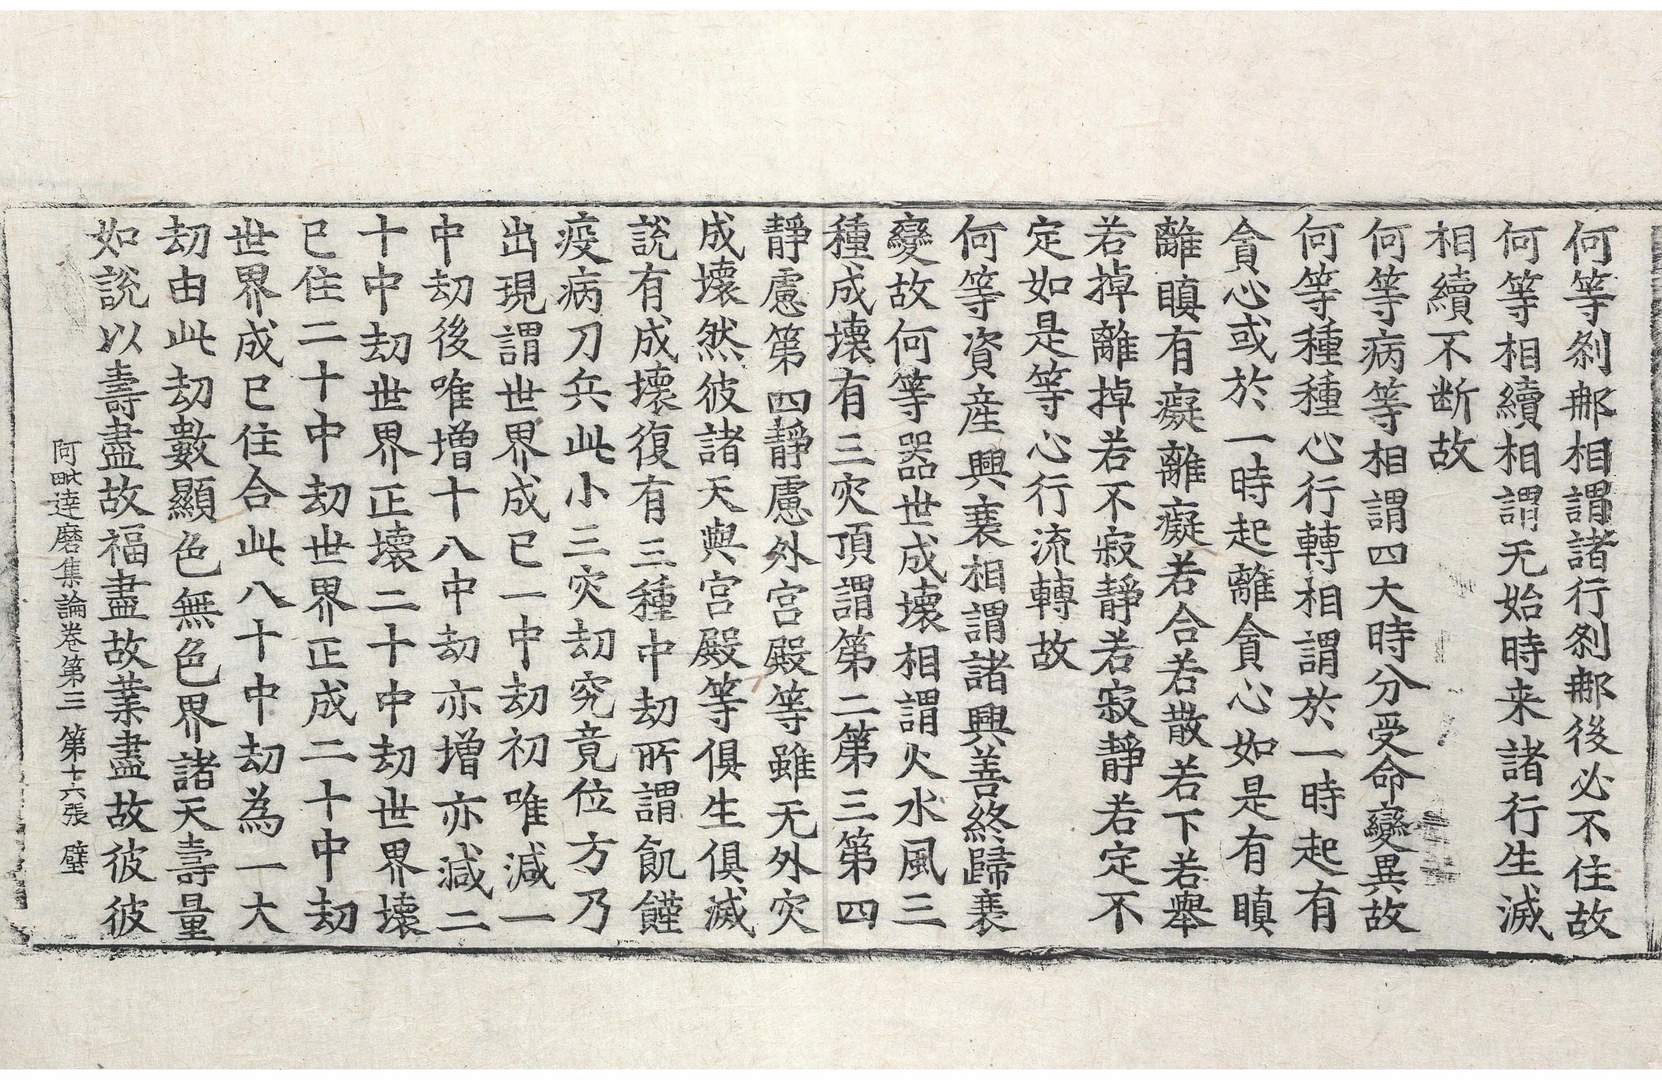 何等刹那相謂諸行刹那後必不住故
何等相續相謂无始時来諸行生滅
相續不断故
何等病等相謂四大時分受命變異故
何等種種心行轉相謂於一時起有
貪心或於一時起離貪心如是有瞋
離瞋有癡離癡若合若散若下若舉
若掉離掉若不寂靜若寂靜若定不
定如是等心行流轉故
何等資産興衰相謂諸興善終歸衰
變故何等器世成壞相謂火水風三
種成壞有三灾頂謂第二第三第四
靜慮第四靜慮外宫殿等雖无外灾
成壞然彼諸天與宫殿等俱生俱滅
說有成壞復有三種中劫所謂飢饉
疫病刀兵此小三灾劫究竟位方乃
出現謂世界成已一中劫初唯減一
中劫後唯增十八中劫亦增亦減二
十中劫世界正壞二十中劫世界壞
已住二十中劫世界正成二十中劫
世界成已住合此八十中劫為一大
劫由此劫數顯色無色界諸天壽量
如說以壽盡故福盡故業盡故彼彼
阿毗達磨集論卷第三 第十六張 璧